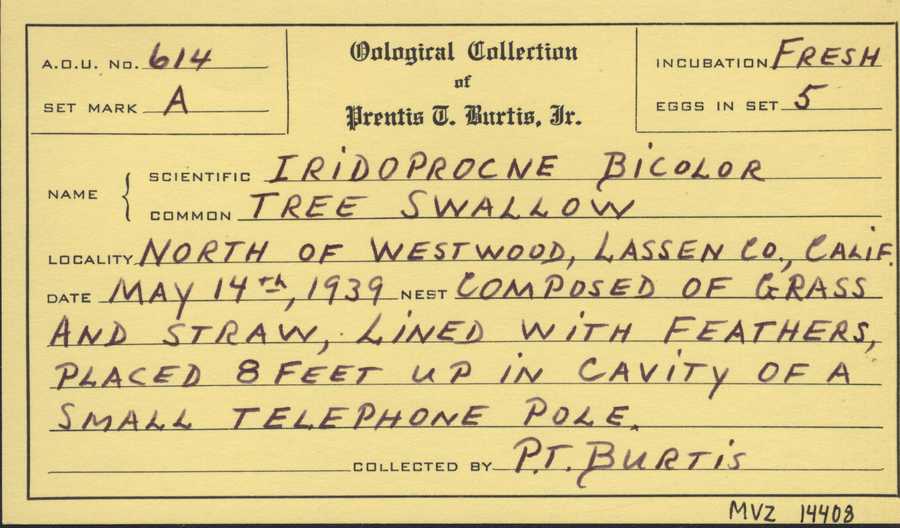 A.O.U. No. 614
SET MARK A
Oological Collection
of
Prentis T. Burtis, Jr.
INCUBATION FRESH
EGGS IN SET 5
NAME
SCIENTIFIC IRIDOPROCNE BICOLOR
COMMON TREE SWALLOW
LOCALITY NORTH OF WESTWOOD, LASSEN CO., CALIF.
DATE MAY 14th, 1939 NEST COMPOSED OF GRASS
AND STRAW, LINED WITH FEATHERS,
PLACED 8 FEET UP IN CAVITY OF A
SMALL TELEPHONE POLE.
COLLECTED BY P.T. BURTIS
MVZ 14408